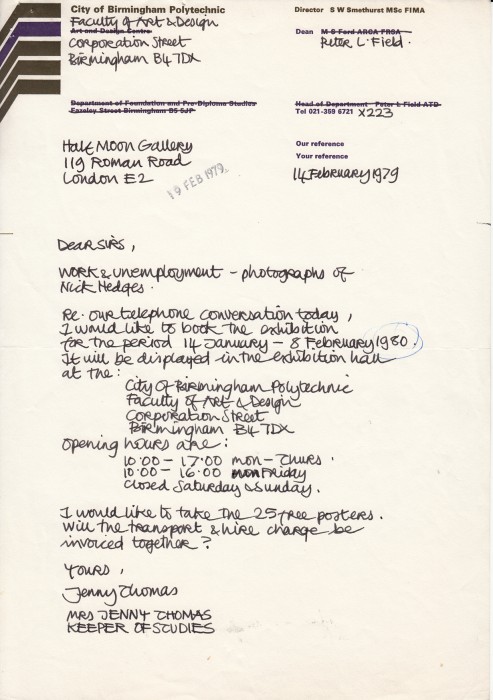 City of Birmingham Polytechnic
Faculty of Art & Design
Art and Design Centre
Corporation Street
Birmingham B4 7DX
Director S W Smethurst MSc FIMA
Dean M S Ford ARCA FRSA
Peter L. Field.
Department of Foundation and Pre-Diploma Studies
Fazeley Street Birmingham B5 5JP
Head of Department Peter L Field ATD
Tel 021-359 6721 X223
Half Moon Gallery
119 Roman Road
London E2
19 FEB 1979
Our reference
Your reference
14 February 1979
Dear Sirs,
Work & unemployment - photographs of
Nick Hedges.
Re. our telephone conversation today,
I would like to book the exhibition
for the period 14 January - 8 February 1980.
It will be displayed in the exhibition hall
at the:
City of Birmingham Polytechnic
Faculty of Art & Design
Corporation Street
Birmingham B4 7DX
Opening hours are:
10.00 - 17.00 mon - Thurs.
10.00 - 16.00 mon Friday
Closed Saturday & Sunday.
I would like to take the 25 free posters.
Will the transport & hire charge be
invoiced together?
Yours,
Jenny Thomas
MRS JENNY THOMAS
KEEPER OF STUDIES